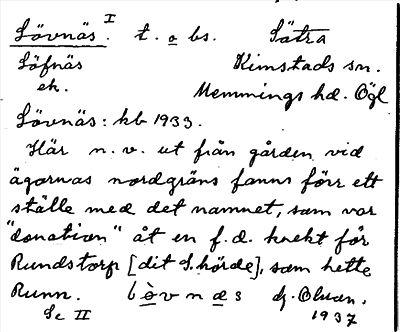 Lövnäs. I t. o bs. Sätra
Löfnäs Kimstads sn.
ek. Memmings hd. Ögl
Lövnäs: kb 1933.
Här n. v. ut från gården vid
ägornas nordgräns fanns förr ett
ställe med det namnet, som var
"donation" åt en f. d. knekt för
Rundstorp [dit S. hörde], som hette
Runn. lövnæs dj. Olsan.
Sc II 1937